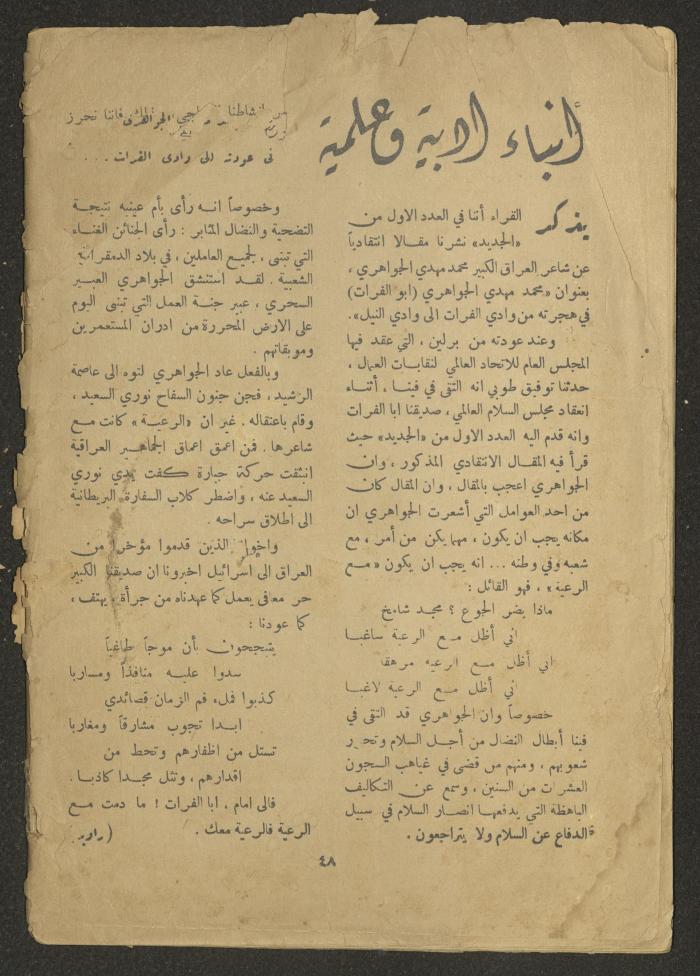 أنباء ادبية وعلمية
يذكر القراء أننا في العدد الاول من
«الجديد» نشرنا مقالا انتقادياً
عن شاعر العراق الكبير محمد مهدي الجواهري ،
بعنوان «محمد مهدي الجواهري (ابو الفرات)
في هجرته من وادي الفرات الى وادي النيل».
وعند عودته من برلين ، التي عقد فيها
المجلس العام للاتحاد العالمي لنقابات العمال ،
حدثنا توفيق طوبي انه التقى في فينا ، أثناء
انعقاد مجلس السلام العالمي ، صديقنا ابا الفرات
وانه قدم اليه العدد الاول من «الجديد» حيث
قرأ فيه المقال الانتقادي المذكور ، وان
الجواهري اعجب بالمقال ، وان المقال كان
من احد العوامل التي أشعرت الجواهري ان
مكانه يجب ان يكون ، مهما يكن من أمر ، مع
شعبه وفي وطنه ... انه يجب ان يكون «مع
الرعية» ، فهو القائل :
ماذا يضر الجوع ؟ مجد شامخ
اني أظل مع الرعية ساغبا
اني أظل مع الرعيه مرهقا
اني أظل مع الرعية لاغبا
خصوصاً وان الجواهري قد التقى في
فينا أبطال النضال من أجل السلام وتحرر
شعوبهم ، ومنهم من قضى في غياهب السجون
العشرات من السنين ، وسمع عن التكاليف
الباهظة التي يدفعها انصار السلام في سبيل
الدفاع عن السلام ولا يتراجعون .
الجواهري فاننا نحرز
في عودته الى وادي الفرات ...
وخصوصاً انه رأى بأم عينيه نتيجة
التضحية والنضال المثابر : رأى الجنائن الغناء
التي تبنى ، لجميع العاملين ، في بلاد الدمقراطية
الشعبية . لقد استنشق الجواهري العبير
السحري ، عبير جنة العمل التي تبنى اليوم
على الارض المحررة من ادران المستعمرين
وموبقاتهم .
وبالفعل عاد الجواهري لتوه الى عاصمة
الرشيد ، فجن جنون السفاح نوري السعيد ،
وقام باعتقاله . غير ان «الرعية» كانت مع
شاعرها . فمن اعمق اعماق الجماهير العراقية
انبثقت حركة جبارة كفت يدي نوري
السعيد عنه ، واضطر كلاب السفارة البريطانية
الى اطلاق سراحه .
واخوان الذين قدموا مؤخرا من
العراق الى اسرائيل اخبرونا ان صديقنا الكبير
حر معافى يعمل كما عهدناه من جرأة ، يهتف ،
كما عودنا :
يتبجحون بأن موجاً طاغياً
سدوا عليه منافذاً ومساربا
كذبوا فملء فم الزمان قصائدي
ابدا تجوب مشارقاً ومغاربا
تستل من اظفارهم وتحط من
اقدارهم ، وتثل مجدا كاذبا .
فالى امام ، ابا الفرات ! ما دمت مع
الرعية فالرعية معك .
٤٨